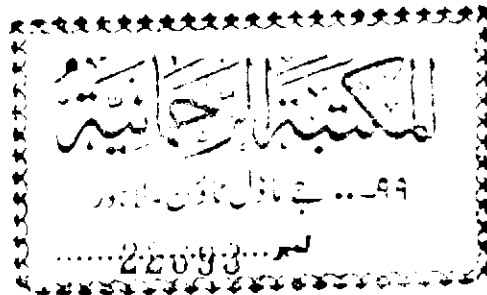 المكتبة الرحمانية
۹۹... جے ماڈل ٹاؤن۔ لاہور
نمبر.....22693.....